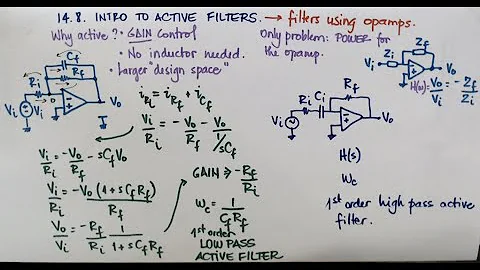 14.8. INTRO TO ACTIVE FILTERS. → filters using opamps.
Why active? • GAIN control
• No inductor needed.
• Larger "design space"
Only problem: POWER for
the opamp.
Zi
Zf
H(ω) = Vo/Vi = -Zf/Zi
Cf
Rf
Ri
Vi
Vo
iRi = iRf + iCf
Vi/Ri = -Vo/Rf - Vo/(1/sCf)
Vi/Ri = -Vo/Rf - sCfVo
Vi/Ri = -Vo(1+sCfRf)/Rf
Vo/Vi = -Rf/Ri 1/(1+sCfRf)
GAIN → -Rf/Ri
ωc = 1/(CfRf)
1st order
LOW PASS
ACTIVE FILTER
Rf
Ri
Ci
Vi
Vo
H(s)
ωc
1st order high pass active
filter.